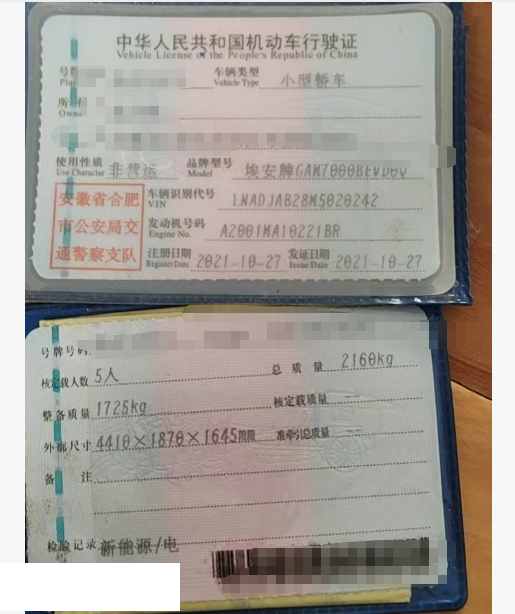 中华人民共和国机动车行驶证
Vehicle License of the People's Republic of China
号
车辆类型 小型轿车
Vehicle Type
所
Owne
使用性质 非营运 品牌型号 埃安牌GAM7000BEVD0Q
Use Character Model
安徽省合肥
市公安局交
通警察支队
车辆识别代号 LNADJAB28M5020242
VIN
发动机号码 A2001MA10221BR
Engine No.
注册日期 2021-10-27 发证日期 2021-10-27
Register Date Issue Date
号牌号码
核定载人数 5人 总质量 2160kg
整备质量 1725kg 核定载质量 --
外廓尺寸 4410×1870×1645mm 准牵引总质量 --
备注
检验记录 新能源/电